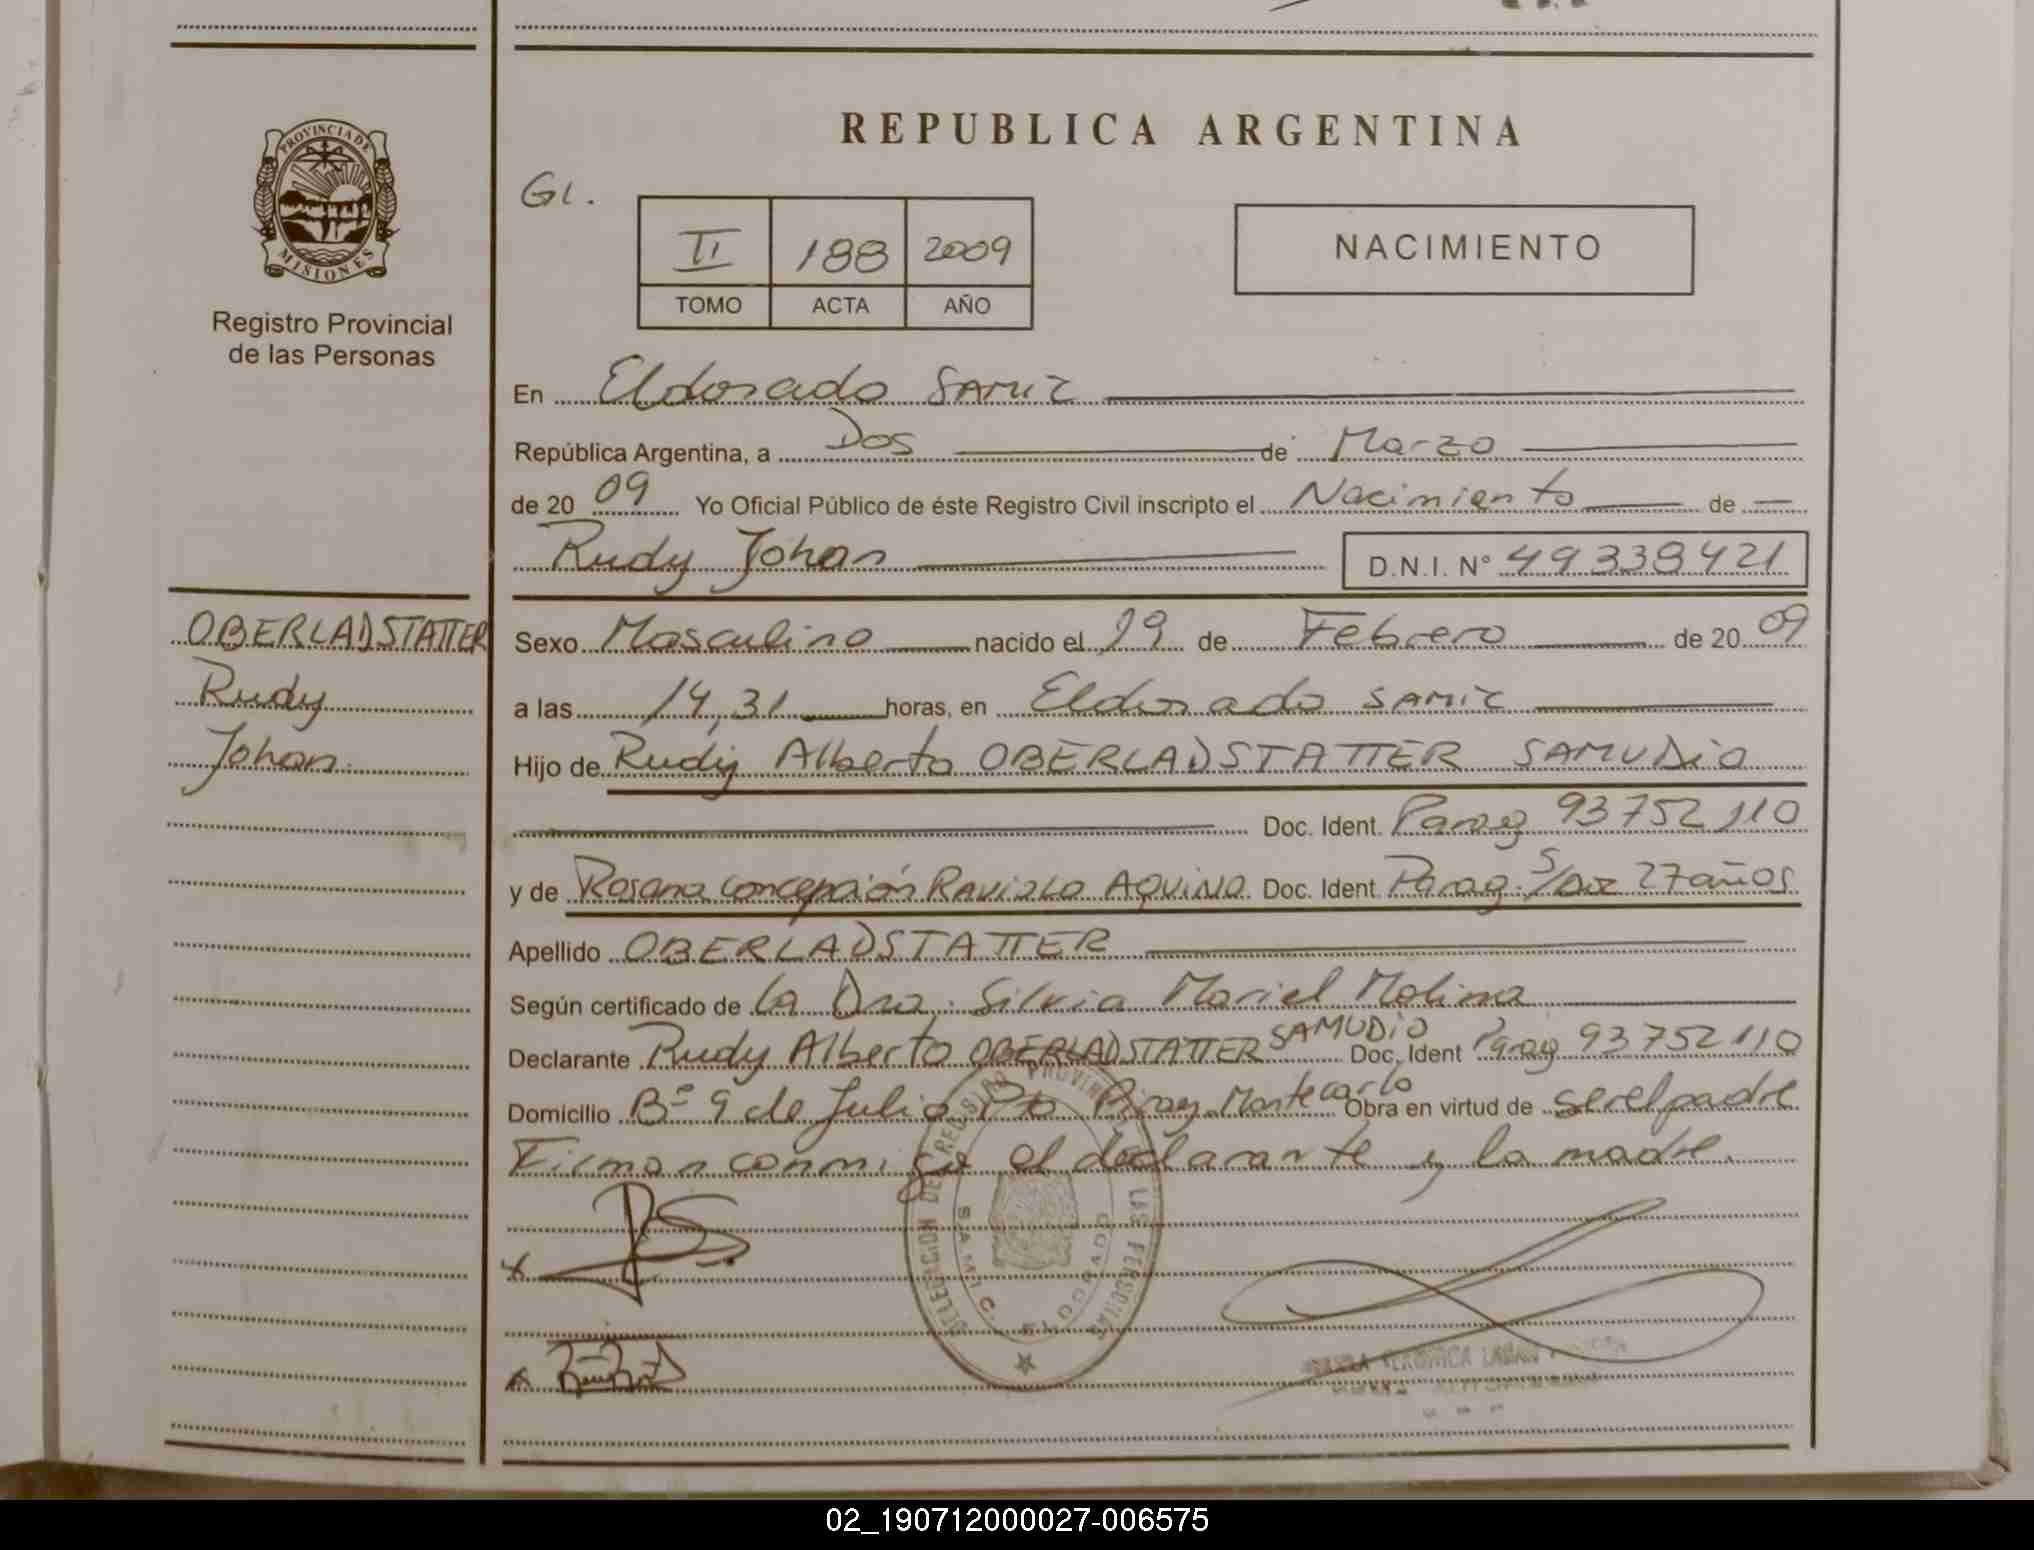 REPUBLICA ARGENTINA
PROVINCIA DE
MISIONES
Registro Provincial
de las Personas
GL.
II 188 2009
TOMO ACTA AÑO
NACIMIENTO
En Eldorado SAMIC
República Argentina, a Dos de Marzo
de 2009 Yo Oficial Público de éste Registro Civil inscripto el Nacimiento de
Rudy Johan D.N.I. N° 49338421
OBERLADSTATTER
Rudy
Johan
Sexo Masculino nacido el 19 de Febrero de 2009
a las 14,31 horas, en Eldorado SAMIC
Hijo de Rudy Alberto OBERLADSTATTER SAMUDIO
Doc. Ident. Parag 93752110
y de Rosana Concepción RAVIOLO AQUINO Doc. Ident. Parag. S/Doc 27 años
Apellido OBERLADSTATTER
Según certificado de la Dra. Silvia Mariel Molina
Declarante Rudy Alberto OBERLADSTATTER SAMUDIO Doc. Ident Parag 93752110
Domicilio B° 9 de Julio Pto Piray Montecarlo Obra en virtud de ser el padre
Firman conmigo el declarante y la madre.
DELEGACION DEL REGISTRO PROVINCIAL DE LAS PERSONAS
S.A.M.I.C.
ELDORADO
VERONICA
02_190712000027-006575